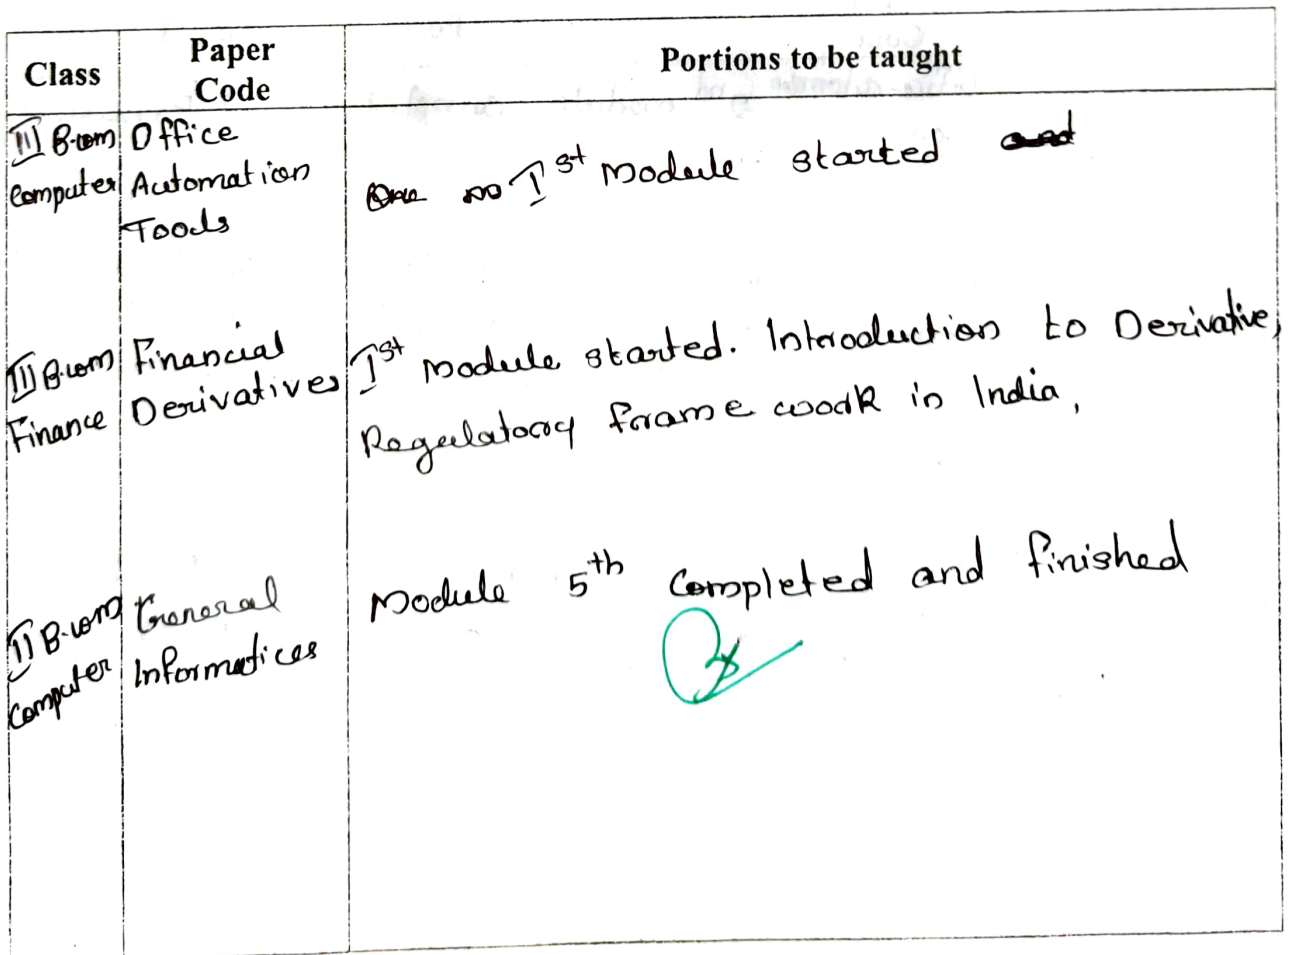 Class Paper Code Portions to be taught
III B.com Computer
Office
Automation
Toods
Ist Module started
III B.com Finance
Financial
Derivatives
Ist Module started. Introduction to Derivative,
Regulatory frame work in India,
II B.com Computer
General
Informatices
Module 5th Completed and finished